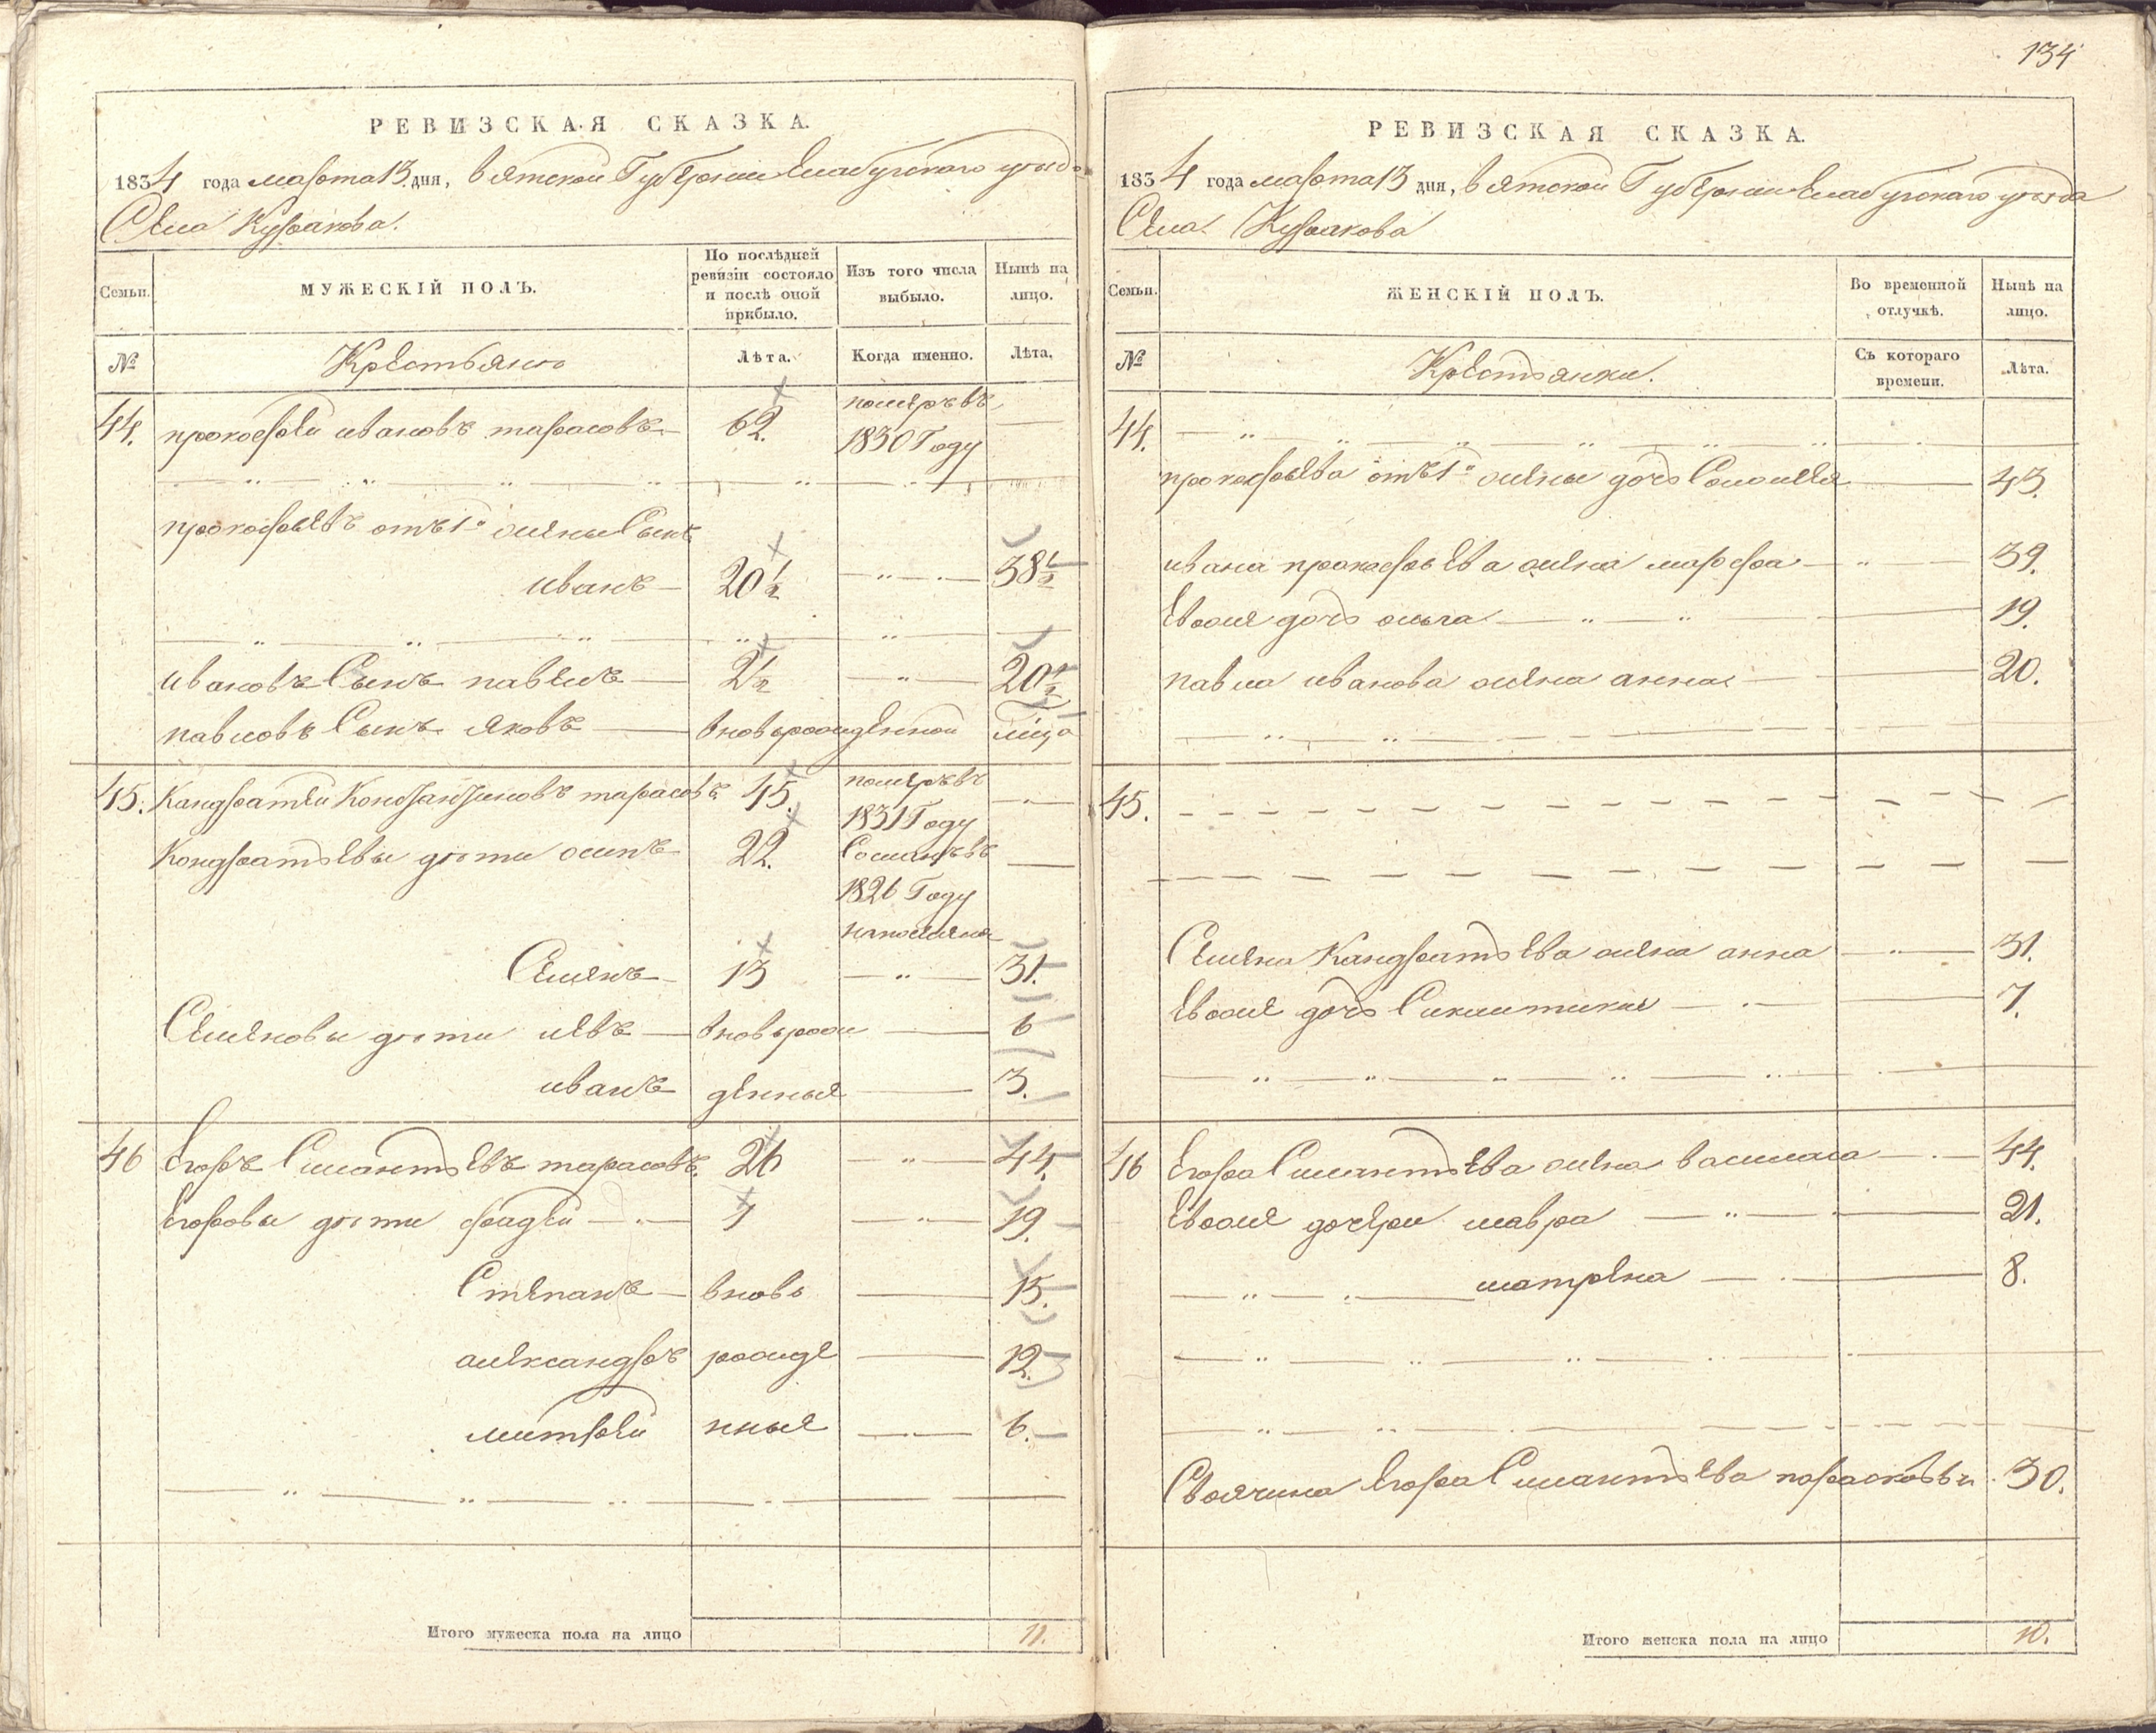 134
РЕВИЗСКАЯ СКАЗКА.
1834 года марта 13 дня, вятской Губернии Елабугскаго уѣзда
Села Куракова.
Семьи.
МУЖЕСКІЙ ПОЛЪ.
По послѣдней ревизіи состояло и послѣ оной прибыло.
Изъ того числа выбыло.
Нынѣ на лицо.
№
Крестьяне
Лѣта.
Когда именно.
Лѣта.
44. прокофей ивановъ тарасовъ 62. померъ въ
1830 Году
прокофьевъ отъ 1й жены Сынъ
иванъ 20½ 38½
ивановъ Сынъ павелъ 2½ 20½
павловъ Сынъ яковъ вновьрожденной ½ года
45. Кандратей Константиновъ тарасовъ 45. померъ въ
1831 Году
Кондратьевы дѣти осипъ 22. Сосланъ въ
1826 Году
на поселение
Семенъ 13 31.
Семеновы дѣти левъ вновьрож 6
иванъ денныя 3.
46 Егоръ Силантьевъ тарасовъ. 26 44.
Егоровы дѣти фадей 1 19.
Степанъ вновь 15.
александръ рожде 12.
митрей нныя 6.
Итого мужеска пола на лицо 11.
РЕВИЗСКАЯ СКАЗКА.
1834 года марта 13 дня, вятской Губернии Елабугскаго уѣзда
Села Куракова
Семьи.
ЖЕНСКІЙ ПОЛЪ.
Во временной отлучкѣ.
Нынѣ на лицо.
№
Крестьянки.
Съ котораго времени.
Лѣта.
44.
прокофьева отъ 1й жены дочь Соломея 43.
ивана прокофьева жена марфа 39.
Евоже дочь ольга 19.
павла иванова жена анна 20.
45.
Семена Кандратьева жена анна 31.
Евоже дочь Сиклитикия 7.
46 Егора Силантьева жена василиса 44.
Евоже дочери мавра 21.
матрена 8.
Своячина Егора Силантьева парасковья 30.
Итого женска пола на лицо 10.